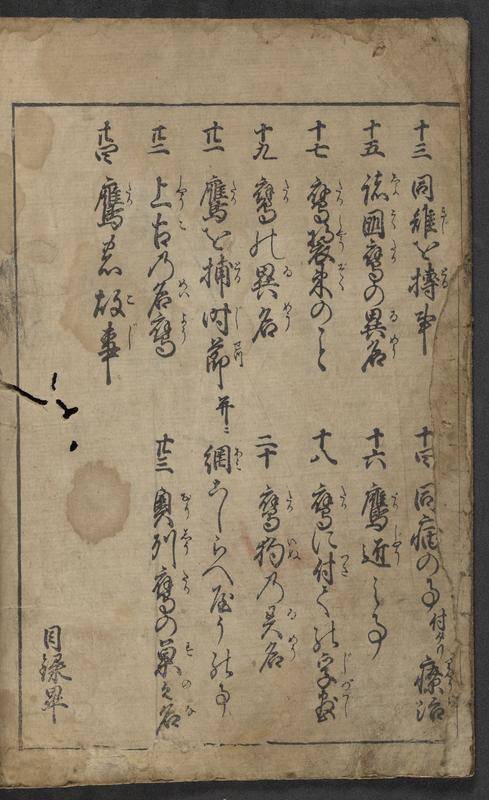 十三 同雉を摶事
十四 同病の事 付タリ 療治
十五 諸国鷹の異名
十六 鷹近之事
十七 鷹装束のこと
十八 鷹に付ての字畫
十九 鷹の異名
二十 鷹狗乃異名
廿一 鷹を捕時節 并ニ 網こしらへ屋うの事
廿二 上古乃名鷹
廿三 奥列鷹の巣之名
廿四 鷹之故事
目録畢